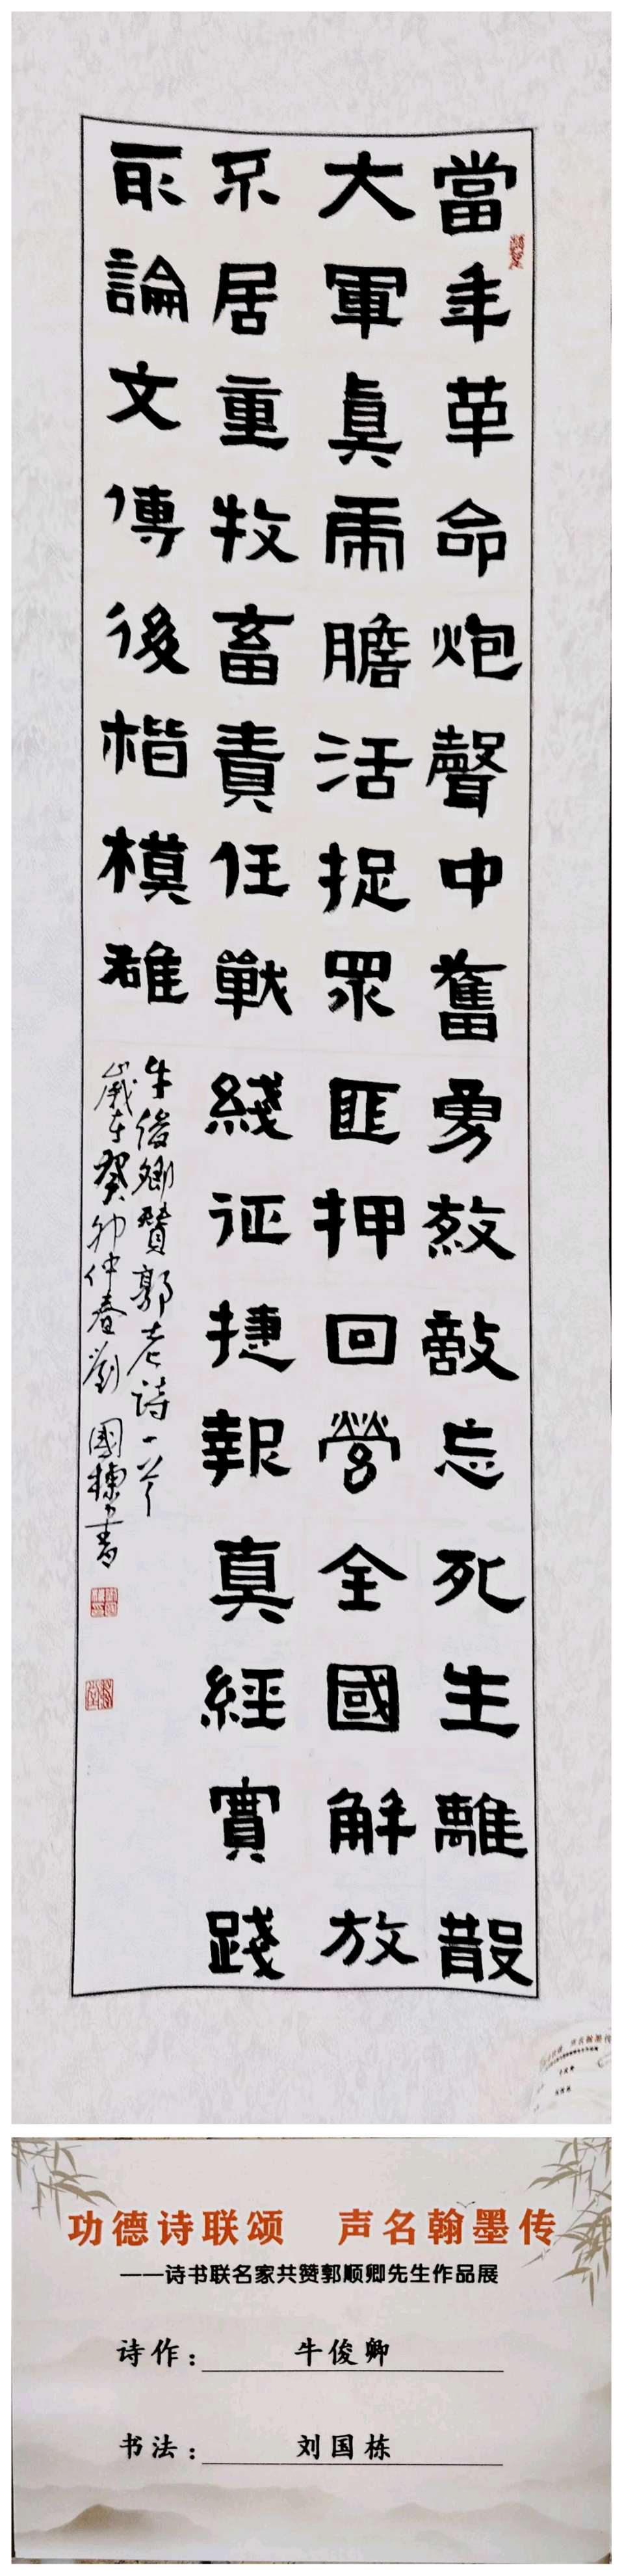 當年革命炮聲中奮勇殺敵忘死生離散
大軍真虎膽活捉眾匪押回營全國解放
不居重牧畜責任戰綫征捷報真經實踐
所論文傳後楷模雄
牛俊卿贊郭老诗一首
歲在癸卯仲春劉國棟書
功德诗联颂 声名翰墨传
——诗书联名家共赞郭顺卿先生作品展
诗作：牛俊卿
书法：刘国栋